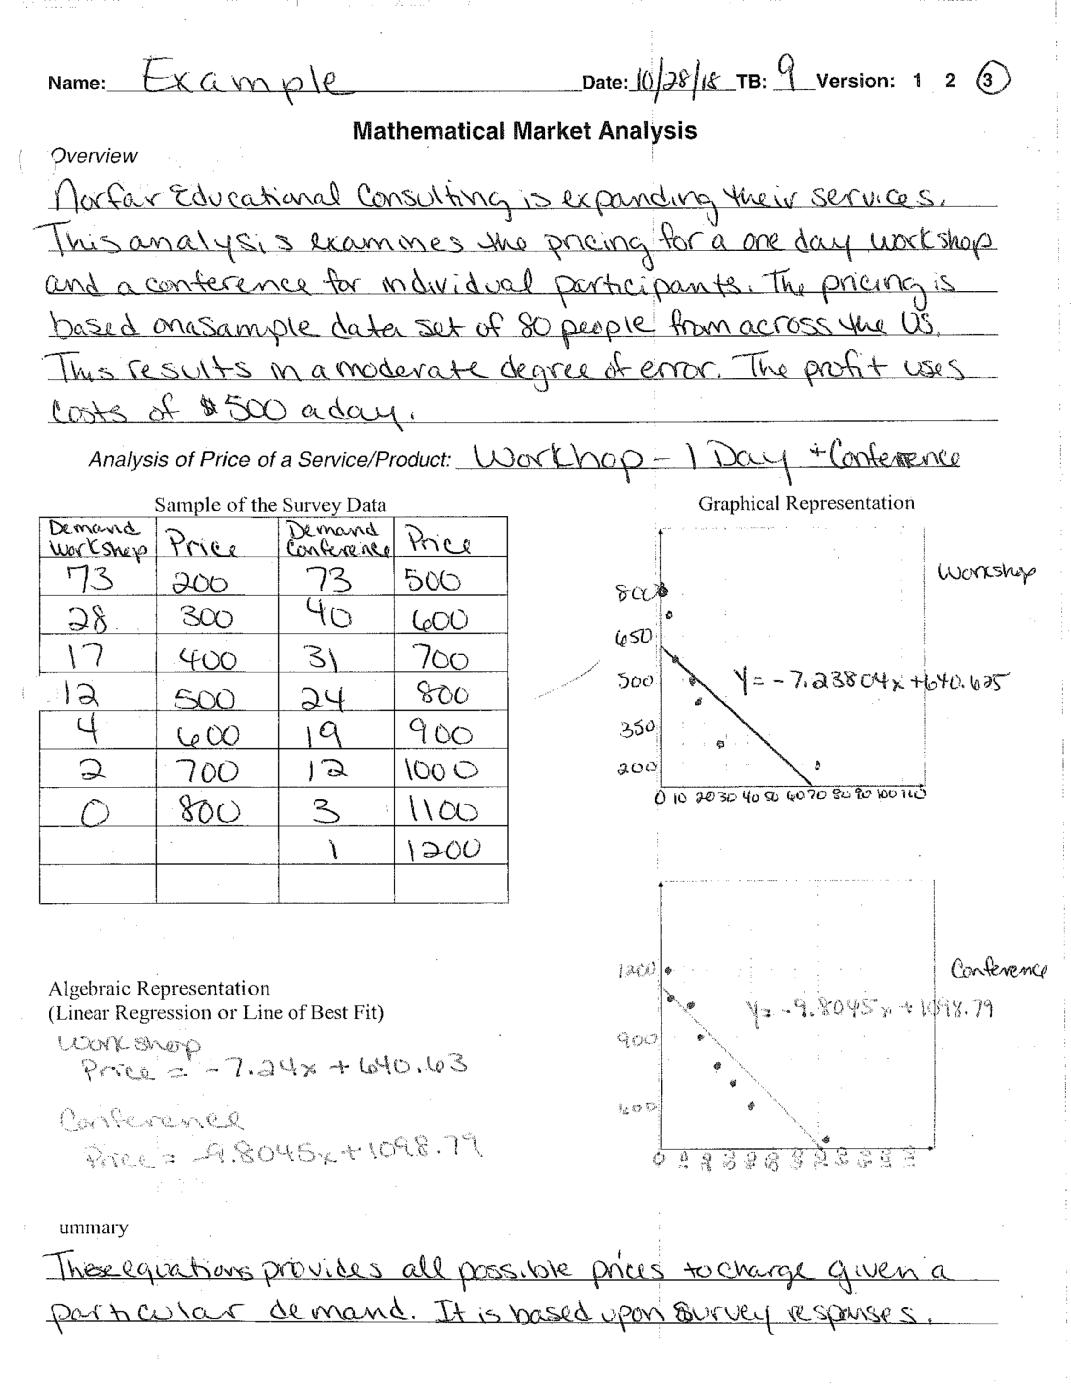 Name: Example Date: 10/28/18 TB: 9 Version: 1 2 3
Mathematical Market Analysis
Overview
Norfair Educational Consulting is expanding their services.
This analysis examines the pricing for a one day workshop
and a conference for individual participants. The pricing is
based on a sample data set of 80 people from across the US.
This results in a moderate degree of error. The profit uses
costs of $500 a day.
Analysis of Price of a Service/Product: Workhop - 1 Day + Conference
Sample of the Survey Data
Demand Workshop Price Demand Conference Price
73 200 73 500
28 300 40 600
17 400 31 700
12 500 24 800
4 600 19 900
2 700 12 1000
0 800 3 1100
1 1200
Graphical Representation
Workshop
800
650
500
350
200
y = -7.23804x + 640.625
0 10 20 30 40 50 60 70 80 90 100 110
Conference
1200
900
600
y = -9.8045x + 1098.79
0
Algebraic Representation
(Linear Regression or Line of Best Fit)
Workshop
Price = -7.24x + 640.63
Conference
Price = -9.8045x + 1098.79
ummary
These equations provides all possible prices to charge given a
particular demand. It is based upon survey responses.